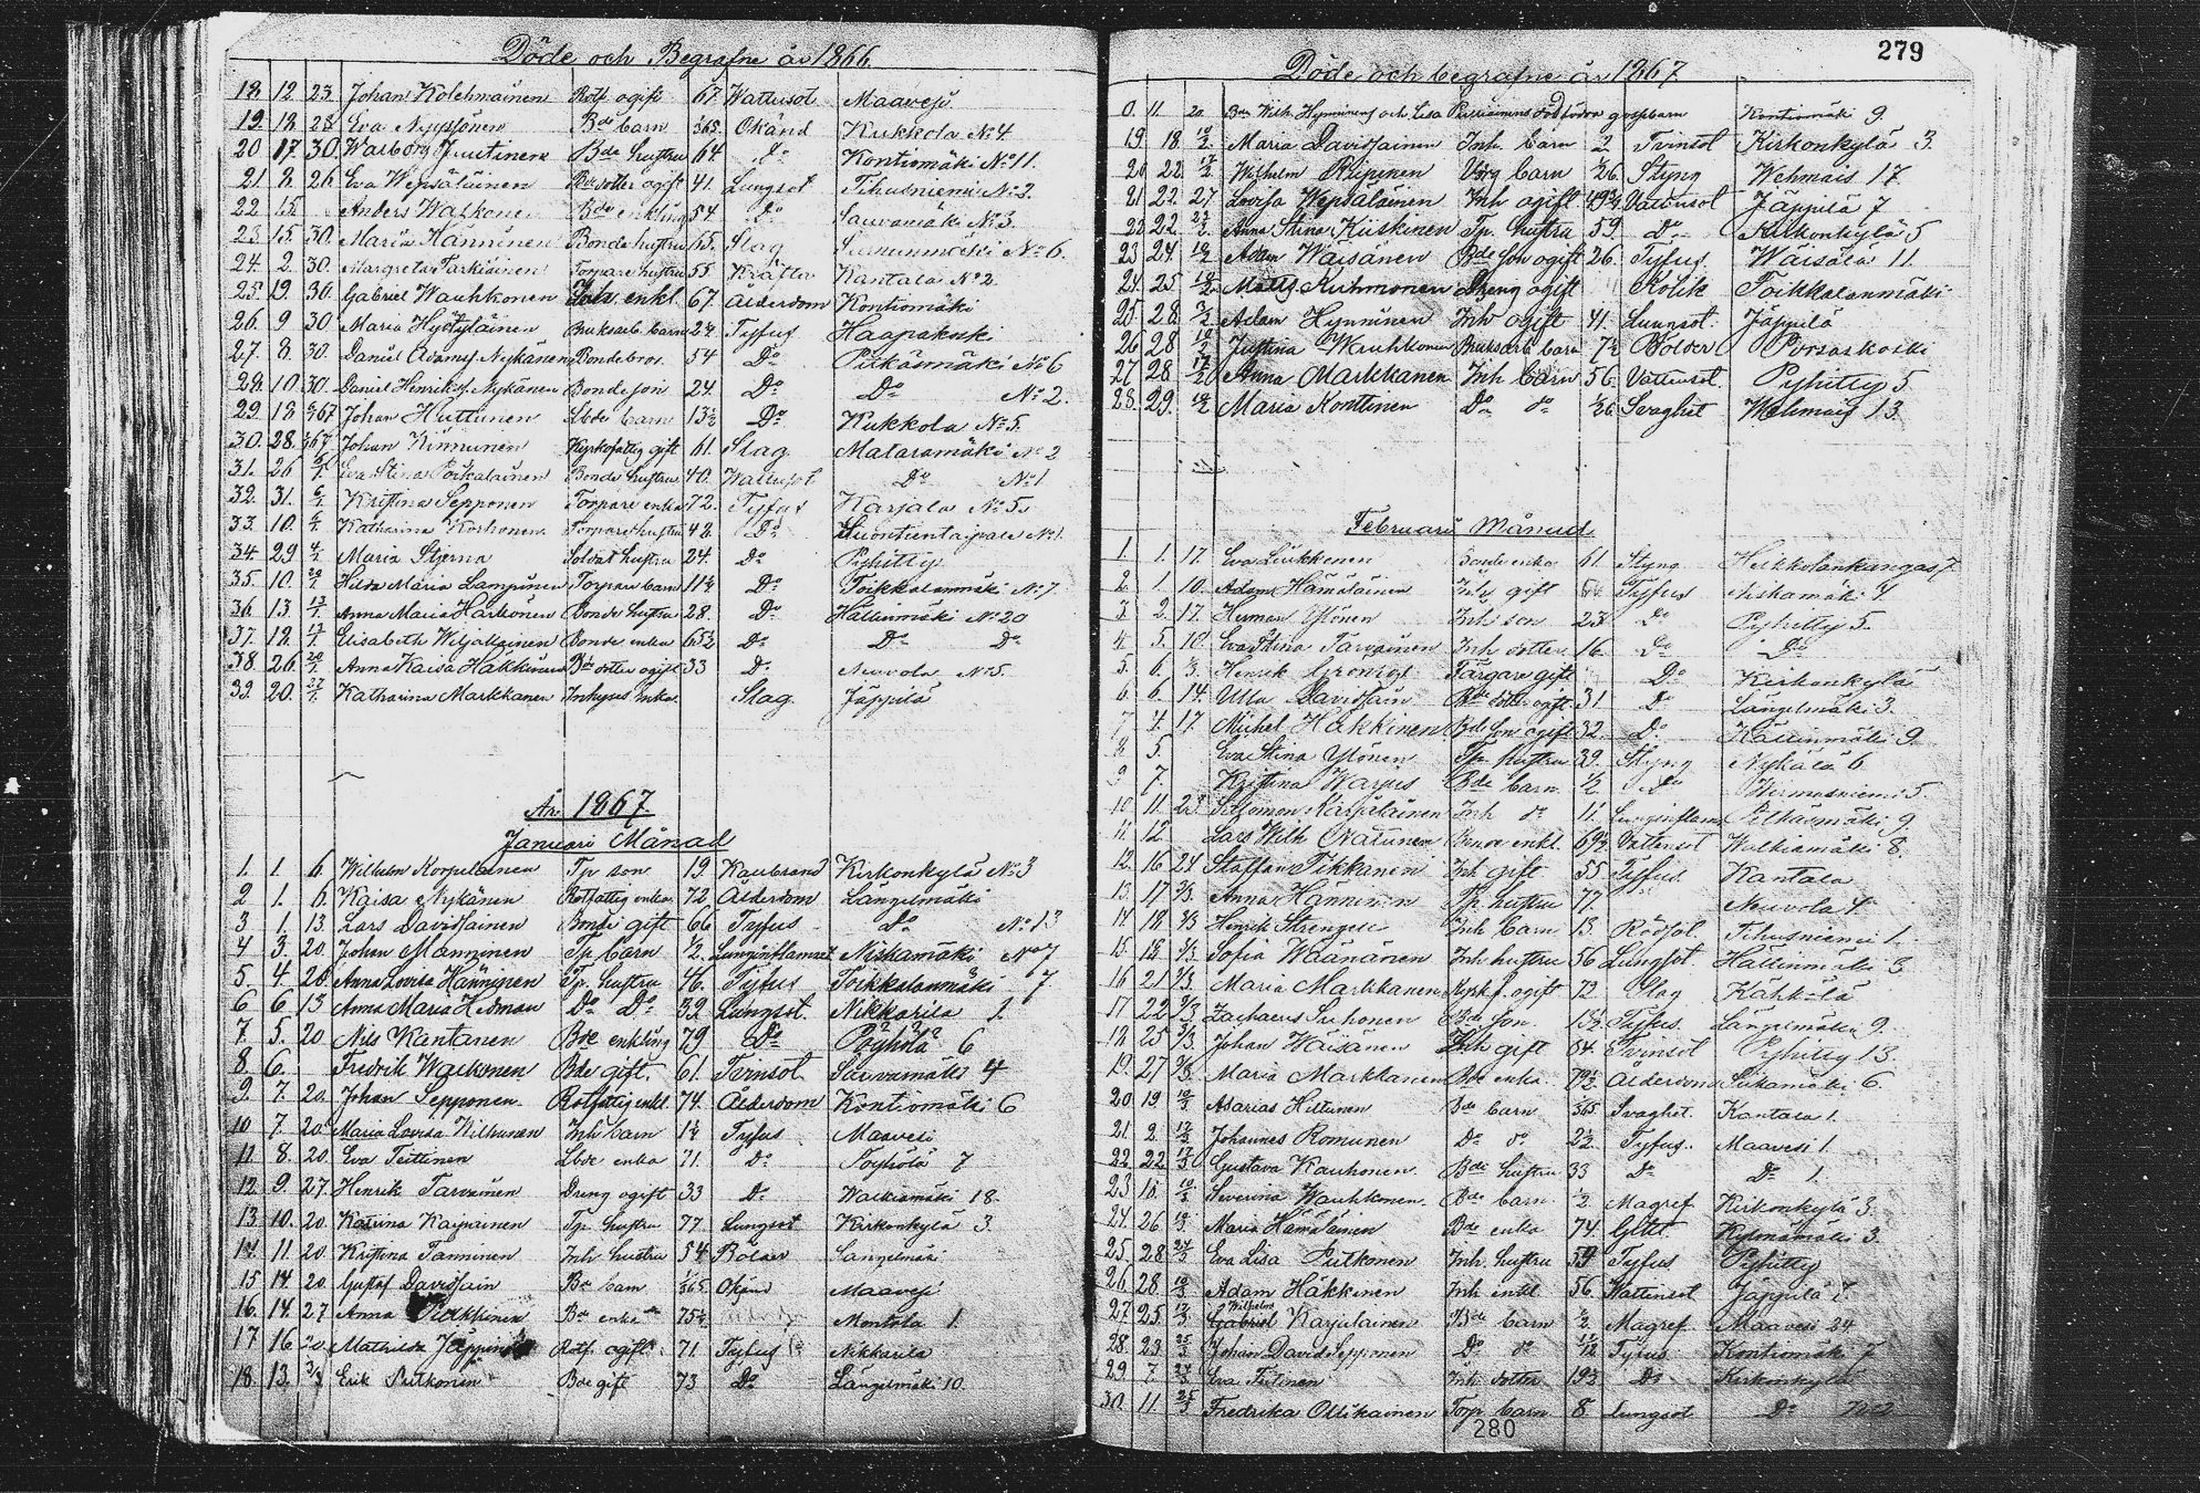 Döde och Begrafne år 1866.
18. 12 23 Johan Kolehmainen Rotf ogift 67 Wattusot Maavesi
19. 18 28 Eva Nyyssönen Bde barn 1/365 Okänd Kukkola No 4
20 17 30 Walborg Juutinen Bde hustru 64 Do Kontiomäki No 11.
21. 8 26 Eva Wepsäläinen Bde dotter ogift 41. Lungsot Tihusniemi No 2.
22 15. Anders Walkonen Bde enkling 54 Do Sauvamäki No 3.
23 15. 30. Maria Hänninen Bonde hustru 65. Slag No 6.
24. 2. 30. Margreta Tarkiainen Torpare hustru 55 Kräfta Kantala No 2
25. 19. 30. Gabriel Wauhkonen enkl. 67. Ålderdom Kontiomäki
26. 9 30 Maria Bruksarb. barn 2 1/2 Tyfus Haapakoski
27. 8. 30. Daniel Adamsf Nykänen Bondebror 54 Do Pitkäsmäki No 6
28. 10 30 Daniel Henriksf Nykänen Bondeson 24. Do Do No 2.
29 18 Johan Huttunen Lbde barn 13 1/2 Do Kukkola No 5.
30. 28. Johan Kinnunen Kyrkofattig gift 61. Slag Mataramäki No 2
31. 26 6/1 Eva Stina Poikalainen Bonde hustru 40. Wattusot Do No 1
32. 31. 6/1 Kristina Sepponen Torpare enka 72. Tyfus Karjala No 5.
33 10. 6/1 Katharina Korhonen Torpare hustru 48. Do No 1.
34. 29 Maria Stjerna Soldat hustru 24. Do Pyhitty
35. 10. 20/1 Hilda Maria Lampinen Torpare barn 11 1/2 Do Toikkalanmäki No 7
36. 13 13/1 Anna Maria Harkonen Bonde hustru 28. Do Hällinmäki No 20
37. 18 13/1 Elisabeth Wiljakainen Bonde enka 65 1/2 Do Do Do
38. 26 20/1 Anna Kaisa Häkkinen Bde dotter ogift 33 Do Neuvola No 5.
39. 20. 27/1 Katharina Markkanen Inhyses enka Slag. Jäppilä
År 1867
Januari Månad
1. 1 6. Wilhelm Korpelainen Tp son 19. Kallbrand Kirkonkylä No 3
2 1. 6. Kaisa Nykänen Rotfattig enka 72 Ålderdom Längelmäki
3 1. 13. Lars Davidsainen Bonde gift 66 Tyfus Do No 13
4 3. 20. Johan Manninen Tp barn 1/2. Lunginflamat Niskamäki No 7
5. 4 20. Anna Lovisa Hänninen Tp. hustru 46. Tyfus Toikkalanmäki 7.
6 6 13 Anna Maria Hedman Do Do 39 Lungsot. Nikkarila 1.
7. 5. 20 Nils Kientanen Bde enkling 79 Do Pöyhölä 6
8. 6. Fredrik Walkonen Bde gift. 61. Tvinsot Sauvamäki 4
9. 7. 20. Johan Sepponen Rotfattig enkl. 74. Ålderdom Kontiomäki 6
10 7. 20 Maria Lovisa Kilkunen Inh barn 1 1/2 Tyfus Maavesi
11 8. 20 Eva Teittinen Lbde enka 71. Do Pöyhölä 7
12 9. 27. Henrik Tarvainen Dreng ogift 33 Do Walkiamäki 18.
13 10. 20. Katrina Kaipainen Tp hustru 77. Lungsot Kirkonkylä 3.
14. 11. 20. Kristina Tanninen Inh hustru 54 Bölder Längelmäki
15 14. 20. Gustaf Davidsain Bde barn 1/365 Okänd Maavesi
16. 14. 27 Anna Pulkkinen Bde enka 75 1/2 Montola 1.
17 16 20 Mathilda Jäppinen Rotf ogift 71. Tyfus Nikkarila
18. 13. 3/2 Erik Putkonen Bde gift 73 Do Längelmäki 10.
279
Döde och begrafne år 1867
11. 20 Kontiomäki 9.
19. 18. 10/2 Maria Davidsainen Inh. barn 2 Tvinsot Kirkonkylä 3.
20 22. 17/2 Wilhelm Piipinen barn 1/26. Styng Wehmais 17.
21 22. 27 Lovisa Wepsäläinen Inh ogift 49 3/4 Vattensot Jäppilä 7
22 22. Anna Stina Kiiskinen Tp. hustru 59 Do Kirkonkylä 5
23 24. 10/2 Adam Wäisänen Bde son ogift 26. Tyfus Wäisälä 11.
24. 25 10/2 Matts Kuhmonen Dreng ogift Kolik Toikkalanmäki
25. 28. 3/2 Adam Hynninen Inh ogift 41. Lunnsot. Jäppilä
26 28 10/2 Justina Wauhkonen Bruksarb barn 7 1/2 Bölder Porsaskoski
27 28 17/2 Anna Markkanen Inh barn 56. Vattensot. Pyhitty 5.
28. 29. 10/2 Maria Konttinen Do do 1/26. Svaghet Wehmais 13.
Februari Månad
1. 1. 17. Eva Liukkonen Bonde enka 61 Styng Heikkolankangas 7
2. 1. 10. Adam Hämäläinen Inh gift Tyfus Niskamäki 4
3. 2. 17. Herman Ylönen Inh son 23. Do Pyhitty 5.
4. 5. 10. Eva Stina Tarvainen Inh dotter 16. Do Do
5. 6. 3. Henrik Färgare gift Do Kirkonkylä
6. 6. 14. Ulla Davidsain Bde dotter ogift 31. Do Längelmäki 3.
7 4. 17. Michel Häkkinen Bde son ogift 32. Do Hällinmäki 9.
8 5. Eva Stina Ylönen Tp hustru 39. Styng Nykälä 6.
9 7. Kristina Warpus Bde barn 1/2. Do 5.
10 11. 24 Salomon Karjalainen Inh do 11. Lunginflam. Pitkäsmäki 9
11 12. Lars Wilh Natunen Bonde enkl. 69 1/2 Vattensot Walkiamäki 8.
12. 16 24 Staffan Tikkanen Inh gift 55 Tyfus. Kantala
13. 17 3/3. Anna Hänninen Tp. hustru 77. Neuvola 4.
14 18 3/3 Henrik Strengell Inh barn 13. Rödsot Tihusniemi 1.
15. 18 3/3. Sofia Wäänänen Inh hustru 56 Lungsot. Hällinmäki 3
16 21 3/3. Maria Markkanen Kyrkf. ogift 72 Slag Kähkölä
17 22 3/3 Zachaeus Suhonen Bde son 13 1/2 Tyfus. Längelmäki 9.
18 25 3/3. Johan Wäisänen Inh gift 64. Tvinsot Pyhitty 13.
19. 27 3/3. Maria Markkanen Bde enka 79 1/2 Ålderdom Siikamäki 6.
20 19 10/3 Asarias Hiltunen Bde barn 1/365 Svaghet. Kantala 1.
21. 2. 17/3 Johannes Romunen Do do 2 1/2 Tyfus. Maavesi 1.
22 22 17/3 Gustava Kauhonen Bde hustru 33 Do Do 1.
23 16. 10/3 Severina Wauhkonen. Bde barn 1/2 Magref Kirkonkylä 3.
24. 26 10/3 Maria Hämäläinen Bde enka 74. Gikt. Kylmämäki 3.
25 28 24/3 Eva Lisa Putkonen Inh hustru 59 Tyfus Pyhitty
26. 28. 10/3 Adam Häkkinen Inh enkl 56 Wattensot Jäppilä 7.
27. 25. 17/3 Wilhelm Gabriel Karjalainen Bde barn 1/2 Magref Maavesi 24
28. 23. 25/3 Johan David Sepponen Do do 11/12 Tyfus Kontiomäki 7
29 7. 24/3 Eva Teitinen Inh dotter 19 1/2 Do Kirkonkylä
30. 11 25/3 Fredrika Ollikainen Torp barn 8 Lungsot Do No 2
280